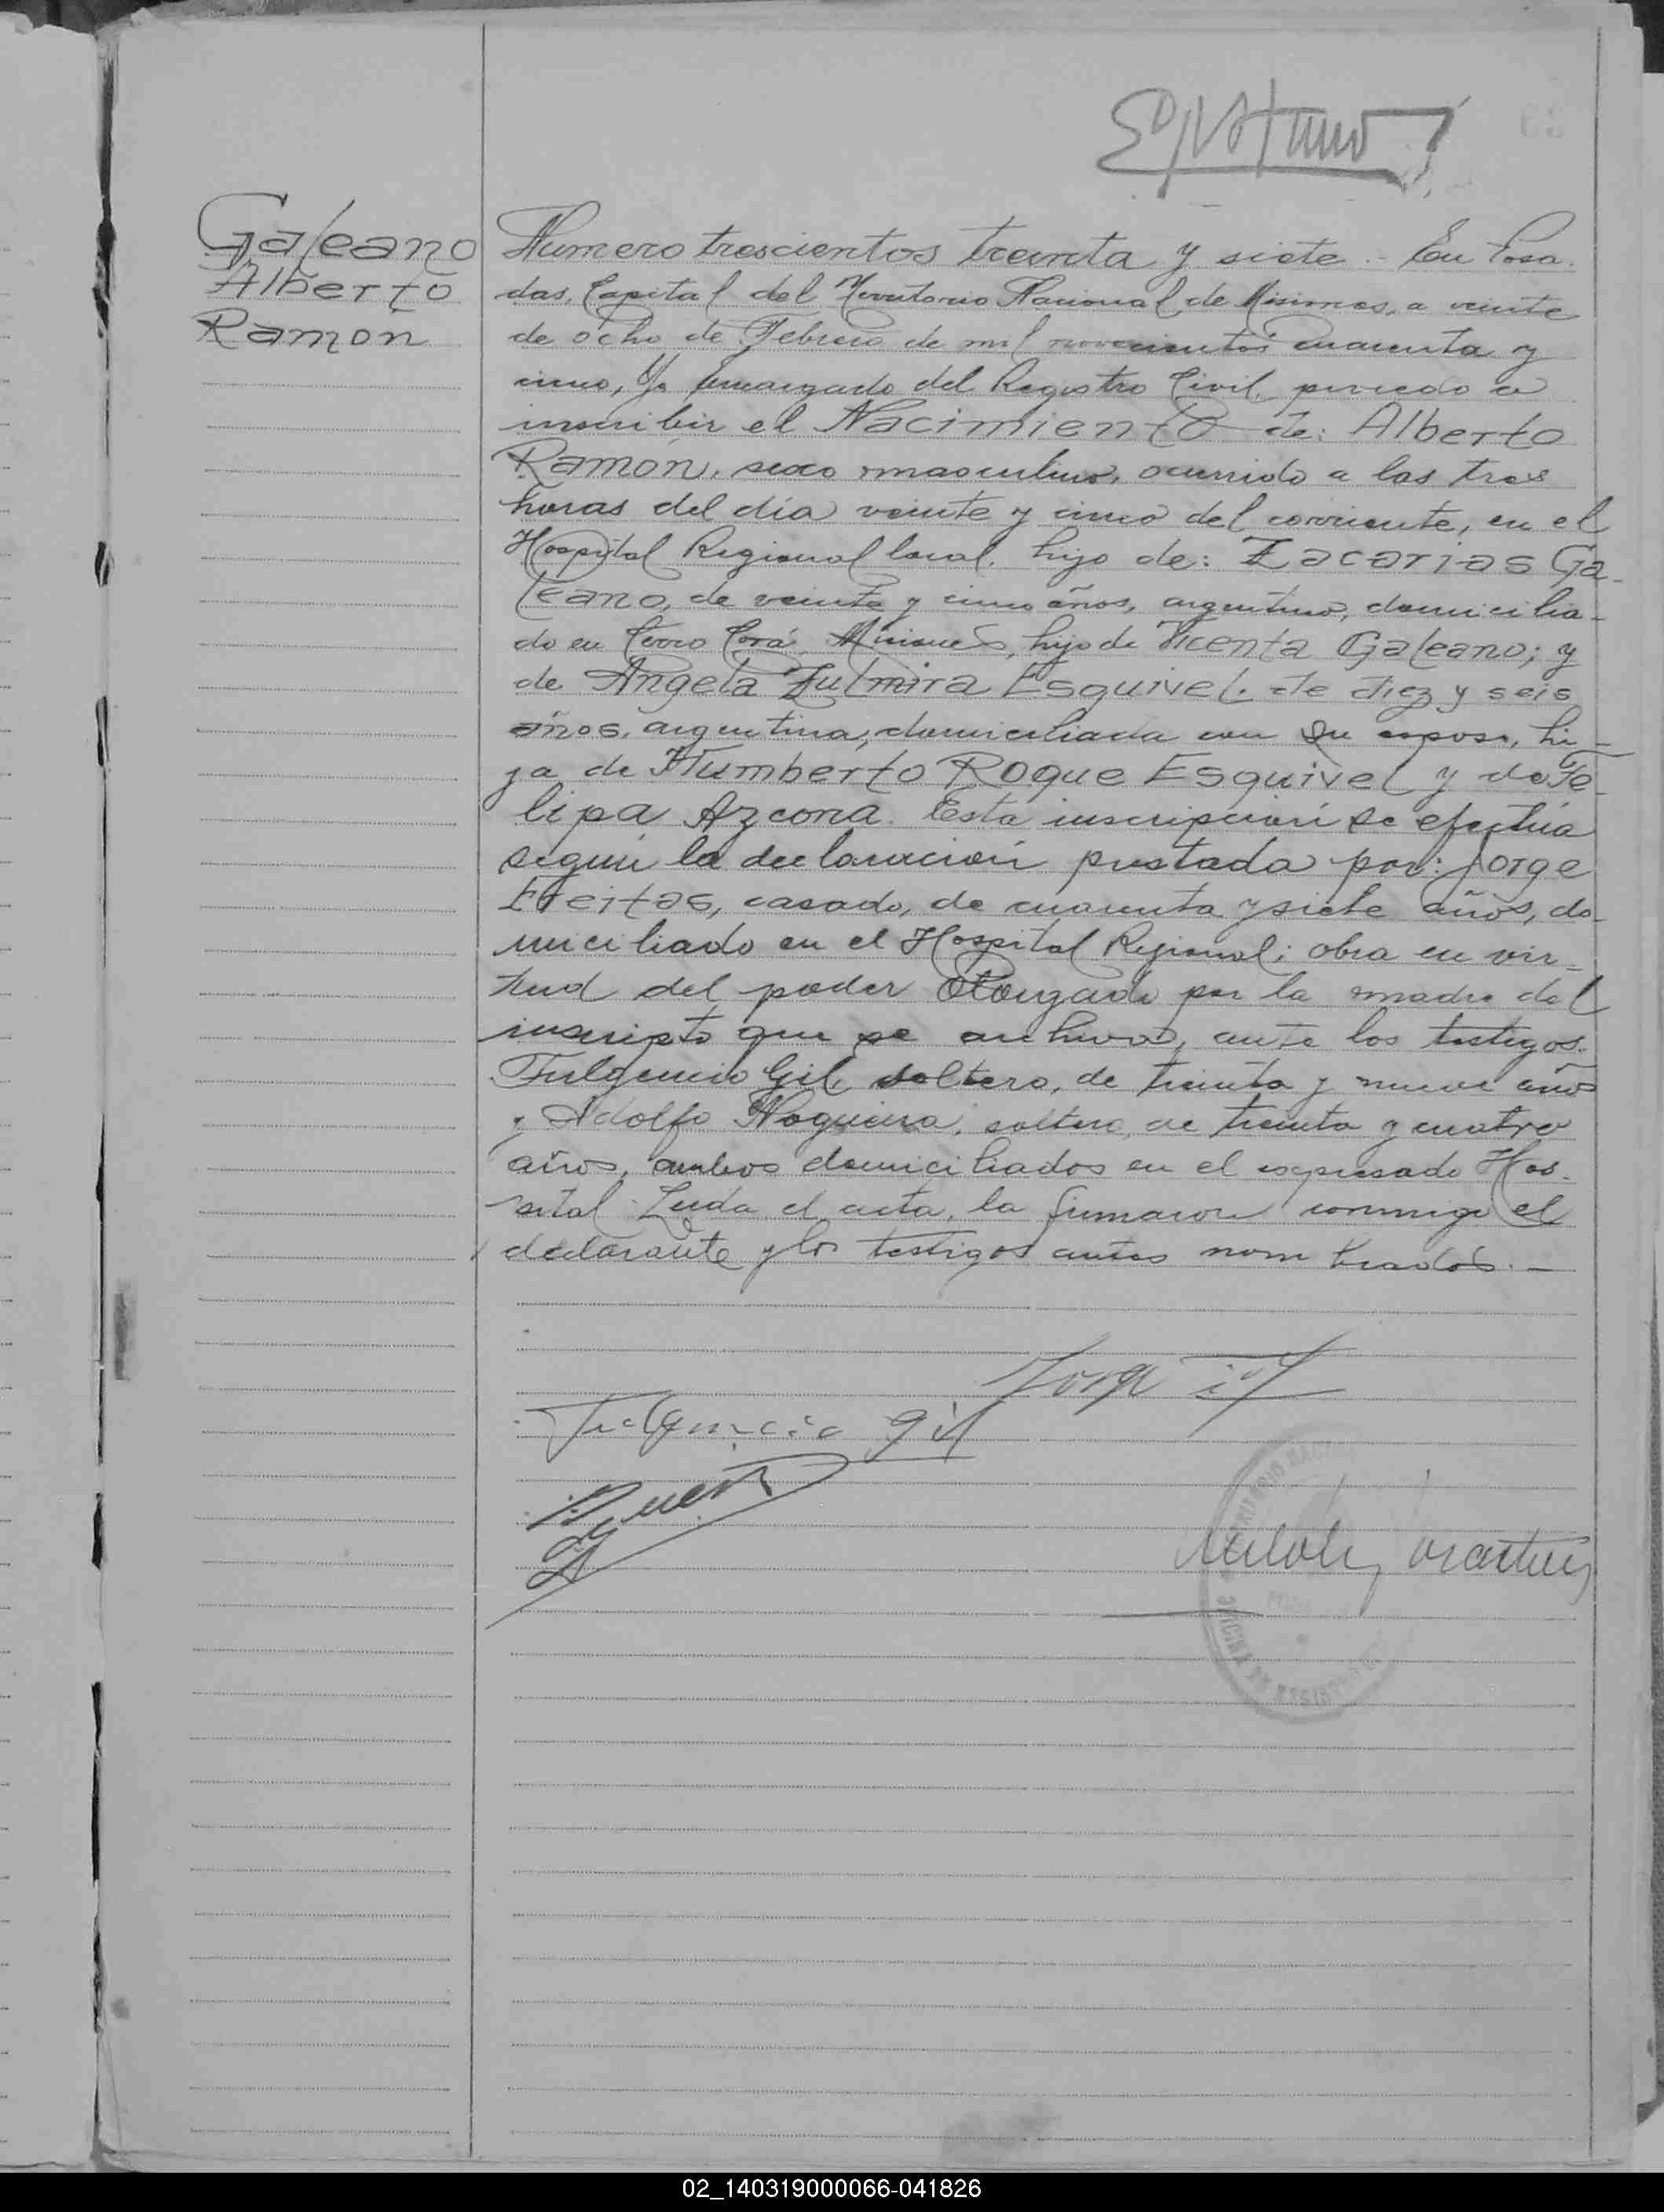 Galeano
Alberto
Ramon
Numero trescientos treinta y siete.- En Posa-
das, Capital del Territorio Nacional de Misiones, a veinte
de ocho de Febrero de mil novecientos cuarenta y
cinco, Yo Encargado del Registro Civil, procedo a
inscribir el Nacimiento de: Alberto
Ramón, sexo masculino, ocurrido a las tres
horas del día veinte y cinco del corriente, en el
Hospital Regional local, hijo de: Zacarias Ga-
leano, de veinte y cinco años, argentino, domicilia-
do en Cerro Corá, Misiones, hijo de Vicenta Galeano; y
de Angela Zulmira Esquivel, de diez y seis
años, argentina, domiciliada con su esposo, hi-
ja de Humberto Roque Esquivel y de Fe-
lipa Azcona. Esta inscripción se efectúa
según la declaración prestada por: Jorge
Freitas, casado, de cuarenta y siete años, do-
miciliado en el Hospital Regional; obra en vir-
tud del poder otorgado por la madre del
inscripto que se archiva, ante los testigos:
Fulgencio Gil, soltero, de treinta y nueve años
y Adolfo Nogueira, soltero, de treinta y cuatro
años, ambos domiciliados en el expresado Hos-
pital. Leida el acta, la firmaron conmigo el
declarante y los testigos antes nombrados.-
Jorge
Fulgencio Gil
02_140319000066-041826